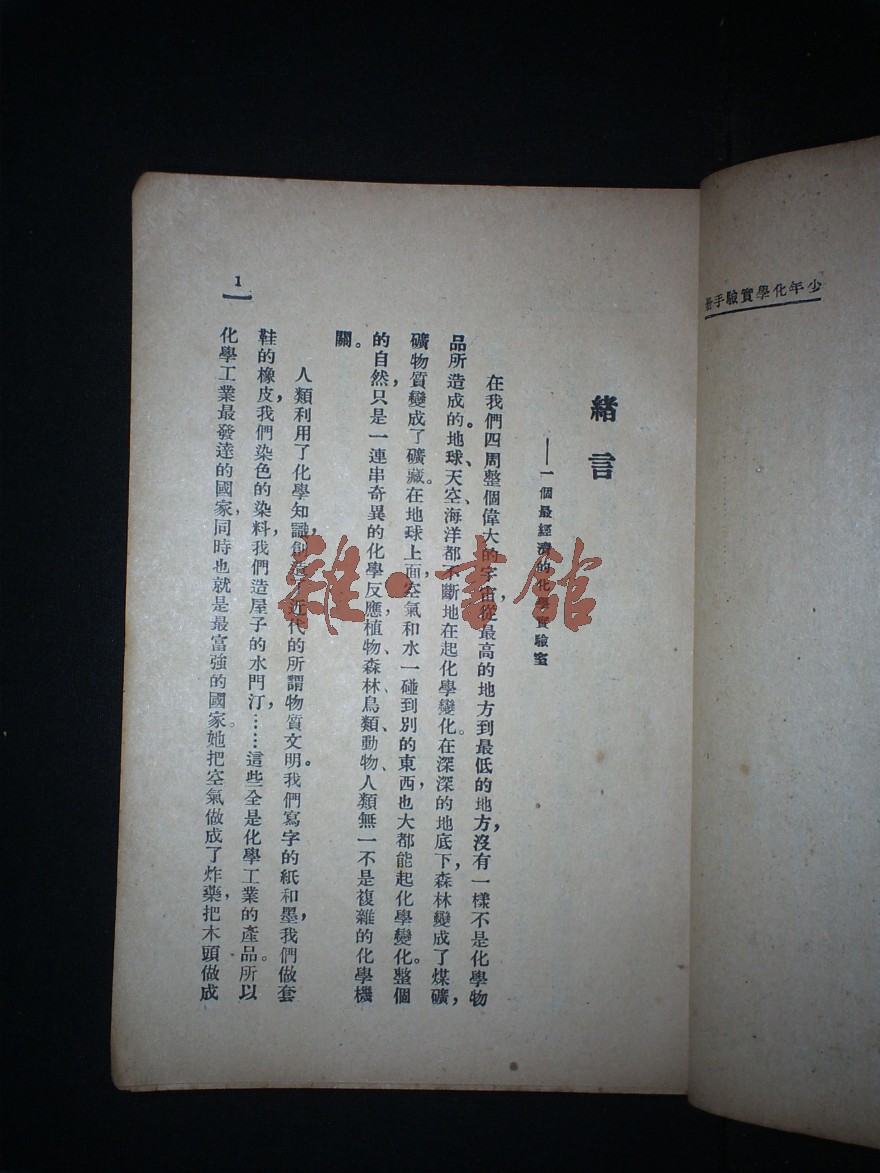 少年化學實驗手冊
緒言
——一個最經濟的化學實驗室
在我們四周整個偉大的宇宙，從最高的地方到最低的地方，沒有一樣不是化學物
品所造成的。地球、天空、海洋都不斷地在起化學變化。在深深的地底下，森林變成了煤礦，
礦物質變成了礦藏。在地球上面，空氣和水一碰到別的東西，也大都能起化學變化。整個
的自然，只是一連串奇異的化學反應，植物、森林、鳥類、動物、人類無一不是複雜的化學機
關。
人類利用了化學知識，創造了近代的所謂物質文明。我們寫字的紙和墨，我們做套
鞋的橡皮，我們染色的染料，我們造屋子的水門汀，……這些全是化學工業的產品。所以
化學工業最發達的國家，同時也就是最富強的國家。她把空氣做成了炸藥，把木頭做成
1
雜·書館